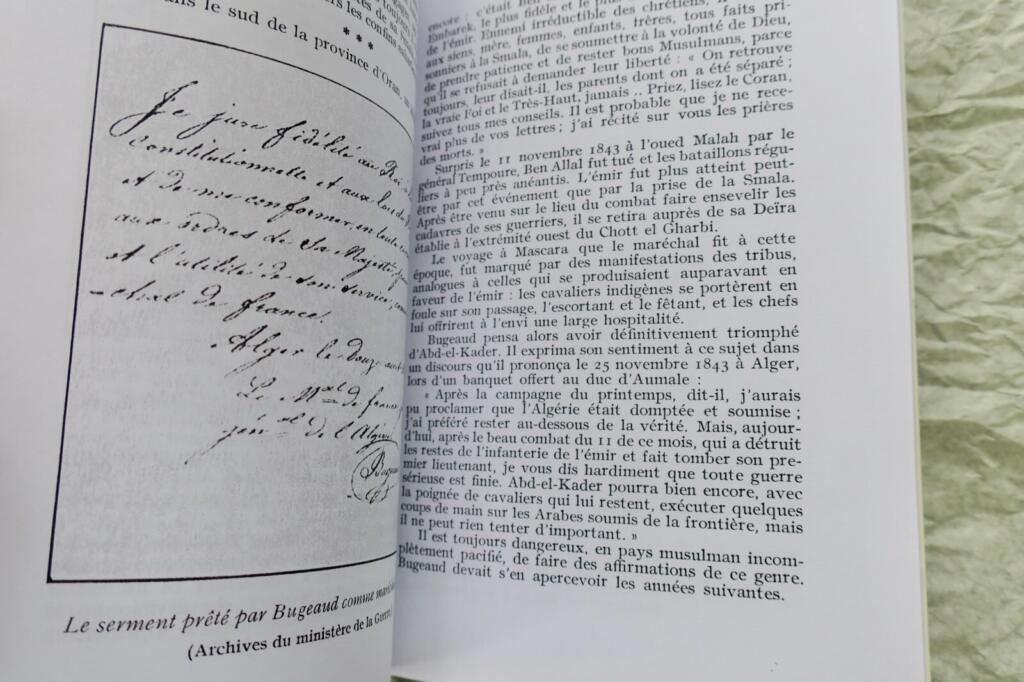 de sa
les confins
***
dans le sud de la province d'Oran
Je jure fidélité au Roi
Constitutionnelle et aux lois du
et de me conformer, en toute
aux ordres de Sa Majesté
et l'utilité de son service,
-chal de france.
Alger le douze
Le Mal de france
gén al de l'Algérie
Bugeaud
Le serment prêté par Bugeaud comme
(Archives du ministère de la Guerre
encore : c'était Ben
Embarek, le plus fidèle et le plus
de l'émir. Ennemi irréductible des chrétiens, il
aux siens, mère, femmes, enfants, frères, tous faits pri-
sonniers à la Smala, de se soumettre à la volonté de Dieu,
de prendre patience et de rester bons Musulmans, parce
qu'il se refusait à demander leur liberté : « On retrouve
toujours, leur disait-il, les parents dont on a été séparé ;
la vraie Foi et le Très-Haut, jamais .. Priez, lisez le Coran,
suivez tous mes conseils. Il est probable que je ne rece-
vrai plus de vos lettres ; j'ai récité sur vous les prières
des morts. »
Surpris le 11 novembre 1843 à l'oued Malah par le
général Tempoure, Ben Allal fut tué et les bataillons régu-
liers à peu près anéantis. L'émir fut plus atteint peut-
être par cet événement que par la prise de la Smala.
Après être venu sur le lieu du combat faire ensevelir les
cadavres de ses guerriers, il se retira auprès de sa Deïra
établie à l'extrémité ouest du Chott el Gharbi.
Le voyage à Mascara que le maréchal fit à cette
époque, fut marqué par des manifestations des tribus,
analogues à celles qui se produisaient auparavant en
faveur de l'émir : les cavaliers indigènes se portèrent en
foule sur son passage, l'escortant et le fêtant, et les chefs
lui offrirent à l'envi une large hospitalité.
Bugeaud pensa alors avoir définitivement triomphé
d'Abd-el-Kader. Il exprima son sentiment à ce sujet dans
un discours qu'il prononça le 25 novembre 1843 à Alger,
lors d'un banquet offert au duc d'Aumale :
« Après la campagne du printemps, dit-il, j'aurais
pu proclamer que l'Algérie était domptée et soumise ;
j'ai préféré rester au-dessous de la vérité. Mais, aujour-
d'hui, après le beau combat du 11 de ce mois, qui a détruit
les restes de l'infanterie de l'émir et fait tomber son pre-
mier lieutenant, je vous dis hardiment que toute guerre
sérieuse est finie. Abd-el-Kader pourra bien encore, avec
la poignée de cavaliers qui lui restent, exécuter quelques
coups de main sur les Arabes soumis de la frontière, mais
il ne peut rien tenter d'important. »
Il est toujours dangereux, en pays musulman incom-
plètement pacifié, de faire des affirmations de ce genre.
Bugeaud devait s'en apercevoir les années suivantes.